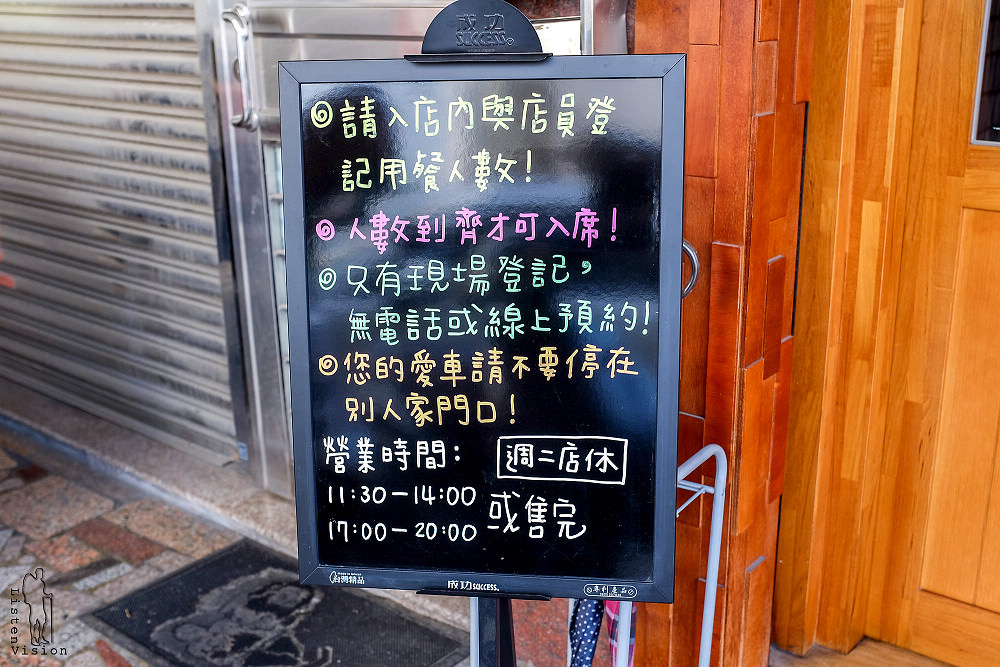 成功
SUCCESS®
◎請入店內與店員登
記用餐人數!
◎人數到齊才可入席!
◎只有現場登記,
無電話或線上預約!
◎您的愛車請不要停在
別人家門口!
營業時間: 週二店休
11:30-14:00 或售完
17:00-20:00
台灣精品
成功 SUCCESS®
專利產品
Listen
Vision